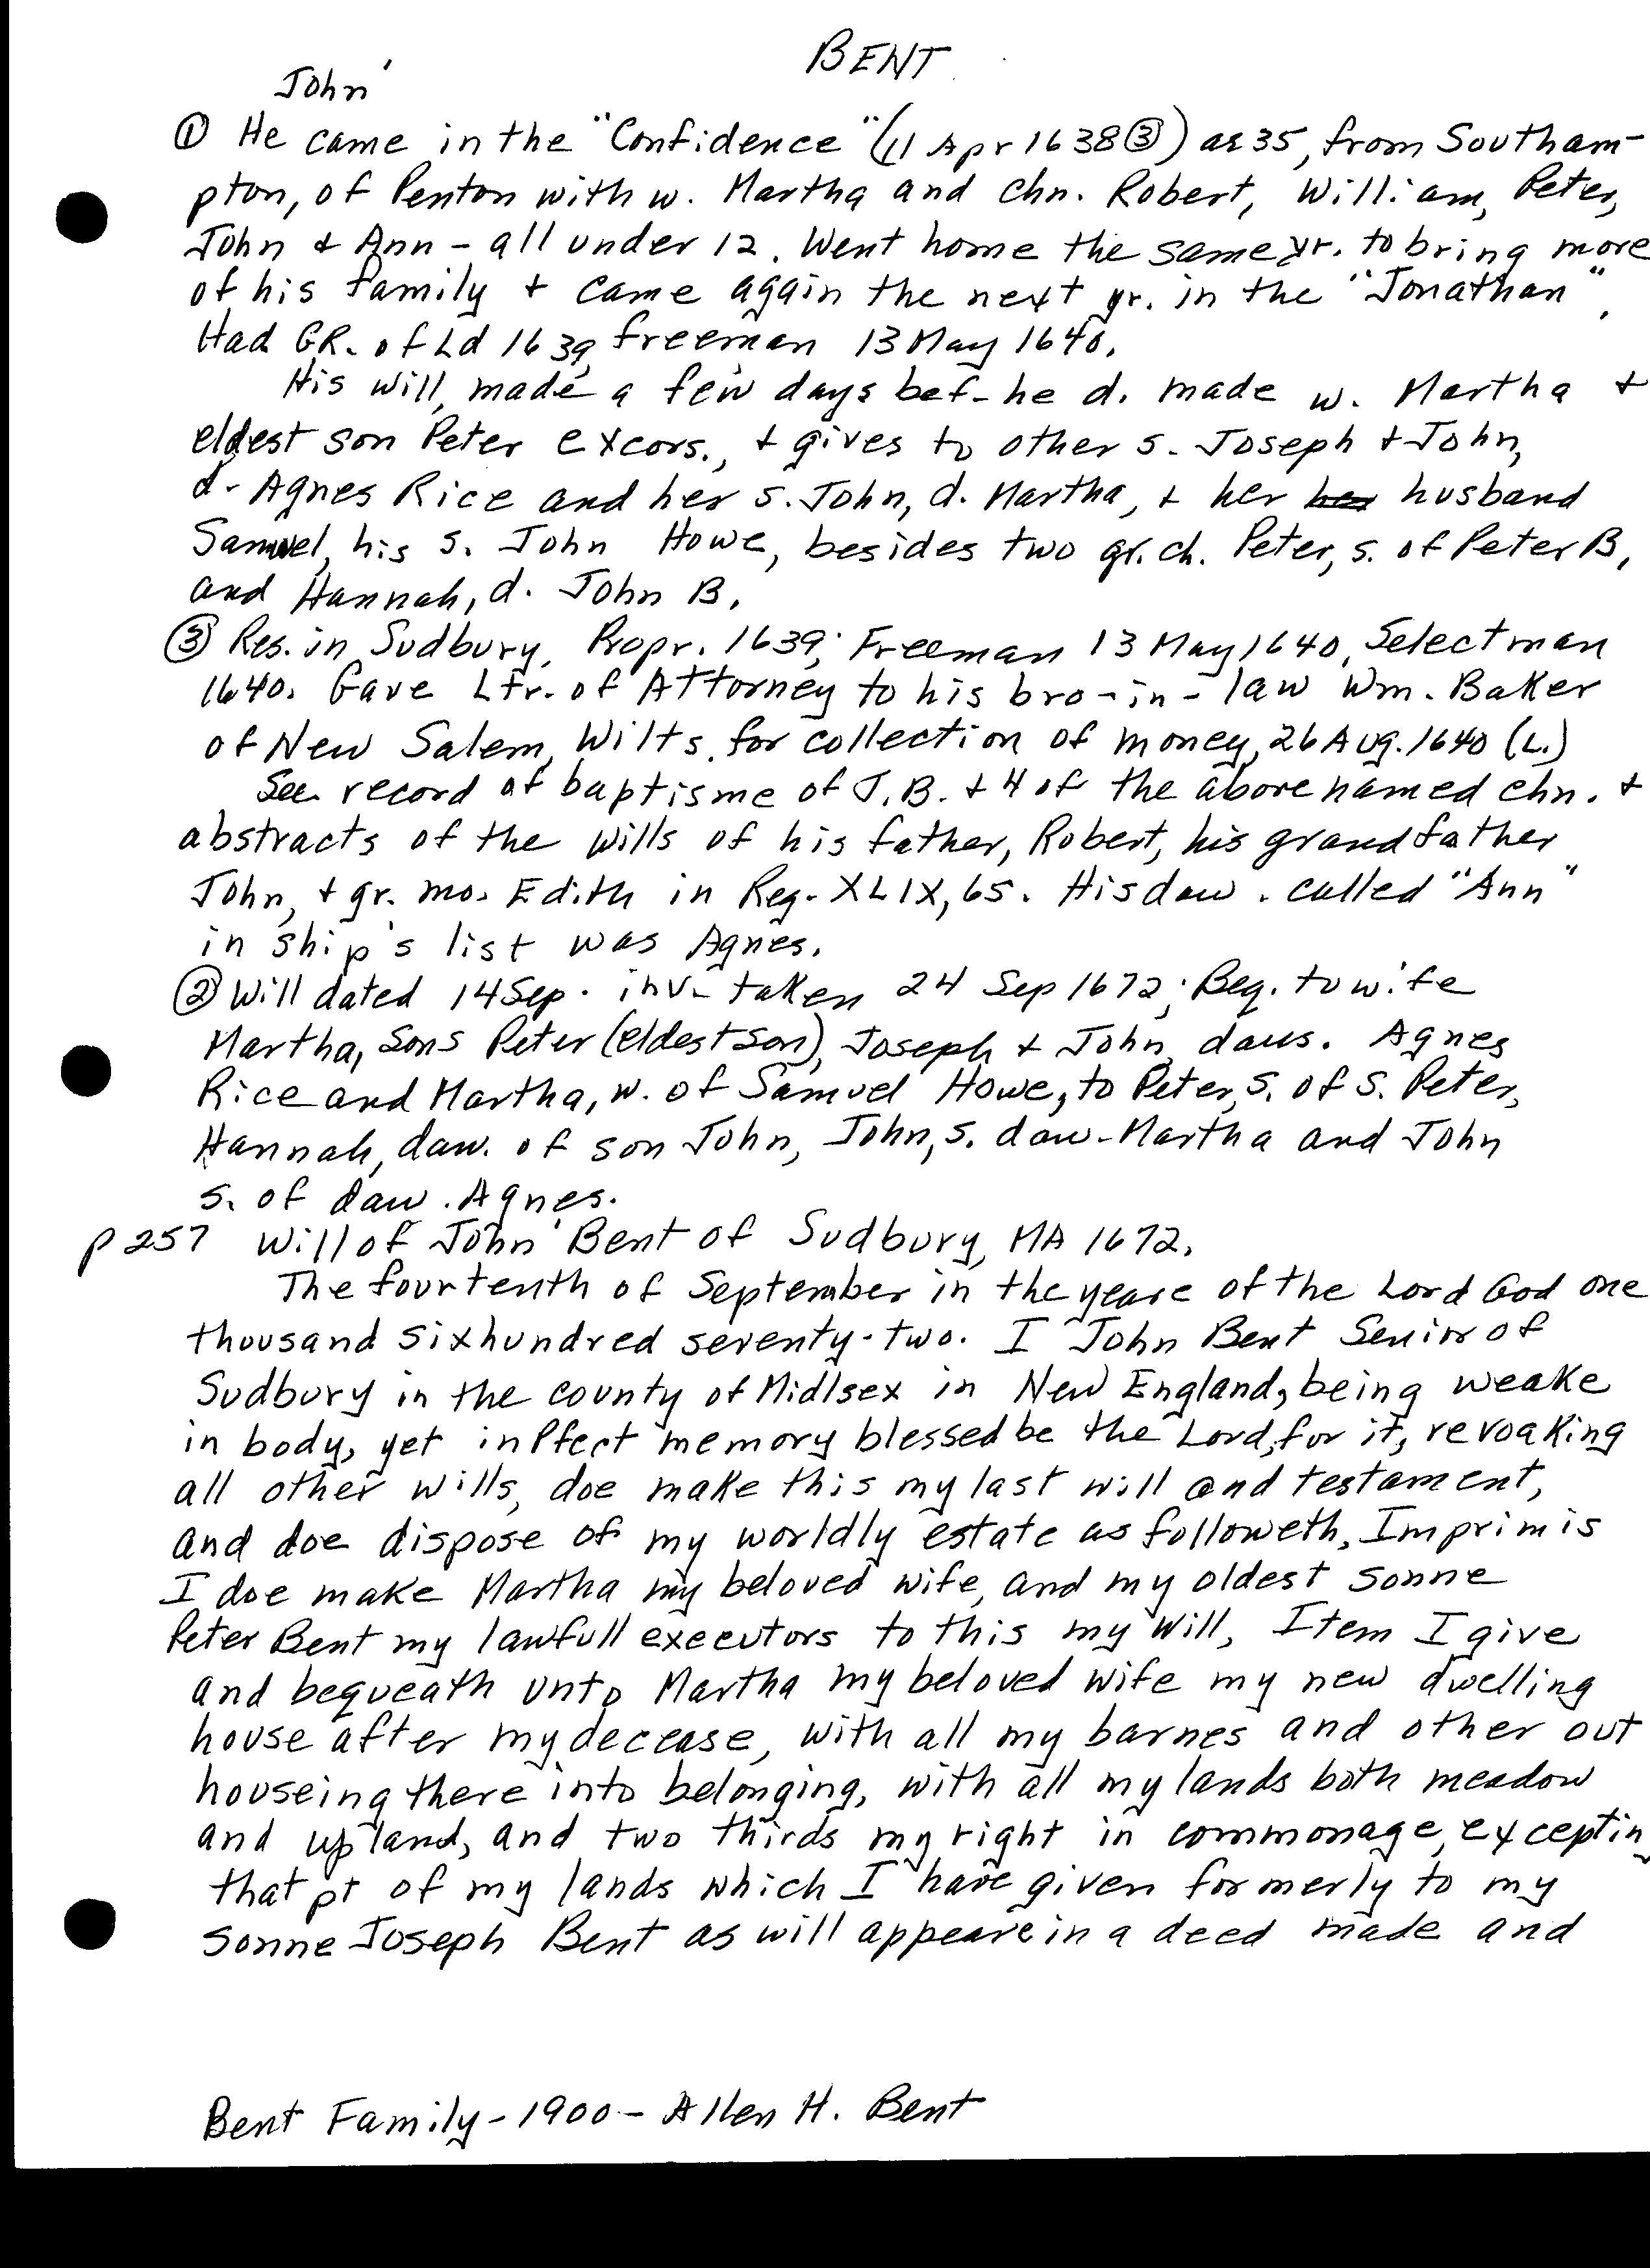 BENT
John'
① He came in the "Confidence" (11 Apr 1638③) ae 35, from Southam-
pton, of Penton with w. Martha and chn. Robert, William, Peter,
John + Ann - all under 12. Went home the same yr. to bring more
of his family + came again the next yr. in the "Jonathan".
Had GR. of Ld 1639, freeman 13 May 1640.
His will, made a few days bef- he d. made w. Martha +
eldest son Peter excors., + gives to other s. Joseph + John,
d. Agnes Rice and her s. John, d. Martha, + her her husband
Samuel, his s. John Howe, besides two gr. ch. Peter, s. of Peter B,
and Hannah, d. John B.
③ Res. in Sudbury, Propr. 1639; Freeman 13 May 1640, Selectman
1640. Gave Ltr. of Attorney to his bro-in-law Wm. Baker
of New Salem, Wilts. for collection of money, 26 Aug. 1640 (L.)
See record of baptisme of J.B. + 4 of the above named chn. +
abstracts of the wills of his father, Robert, his grandfather
John, + gr. mo. Edith in Reg. XLIX, 65. His daw. called "Ann"
in ship's list was Agnes.
② Will dated 14 Sep. inv- taken 24 Sep 1672; Beq. to wife
Martha, sons Peter (eldest son), Joseph + John, daus. Agnes
Rice and Martha, w. of Samuel Howe, to Peter, s. of s. Peter,
Hannah, daw. of son John, John, s. daw. Martha and John
s. of daw. Agnes.
p 257 Will of John' Bent of Sudbury, MA 1672.
The fourtenth of September in the yeare of the Lord God one
thousand sixhundred seventy-two. I John Bent Senior of
Sudbury in the county of Midlsex in New England, being weake
in body, yet in Pfect memory blessed be the Lord, for it, revoaking
all other wills, doe make this my last will and testament,
and doe dispose of my worldly estate as followeth, Imprimis
I doe make Martha my beloved wife, and my oldest sonne
Peter Bent my lawfull executors to this my Will, Item I give
and bequeath unto Martha my beloved wife my new dwelling
house after my decease, with all my barnes and other out
houseing there into belonging, with all my lands both meadow
and upland, and two thirds my right in commonage, exceptin
that pt of my lands which I have given formerly to my
sonne Joseph Bent as will appeare in a deed made and
Bent Family - 1900 - Allen H. Bent